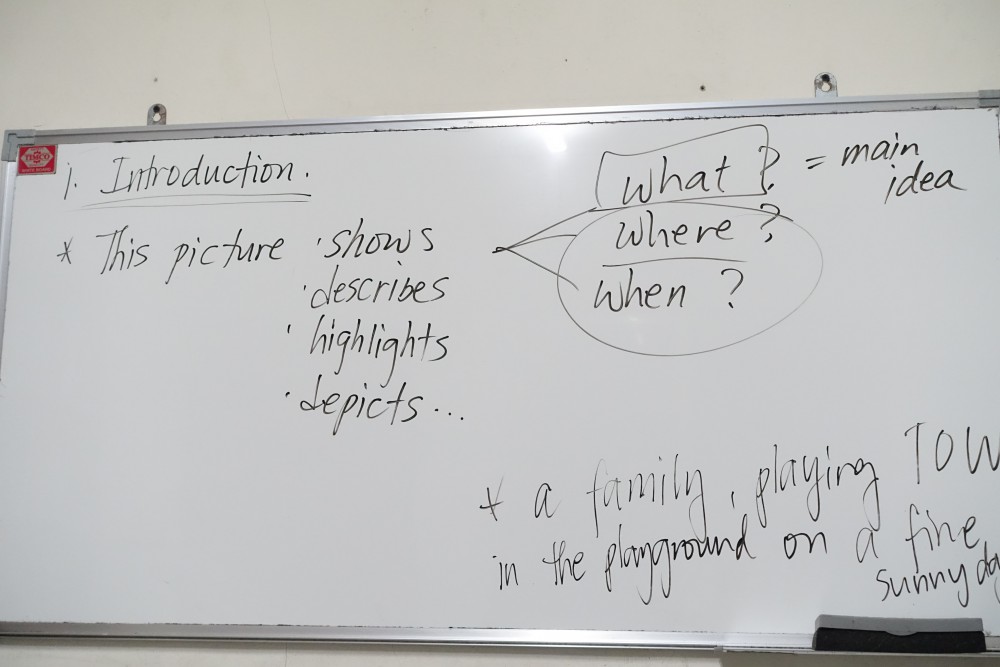 1. Introduction.
* This picture · shows
· describes
· highlights
· depicts...
What? = main
idea
Where?
When?
* a family, playing TOW
in the playground on a fine,
sunny day
TEMCO